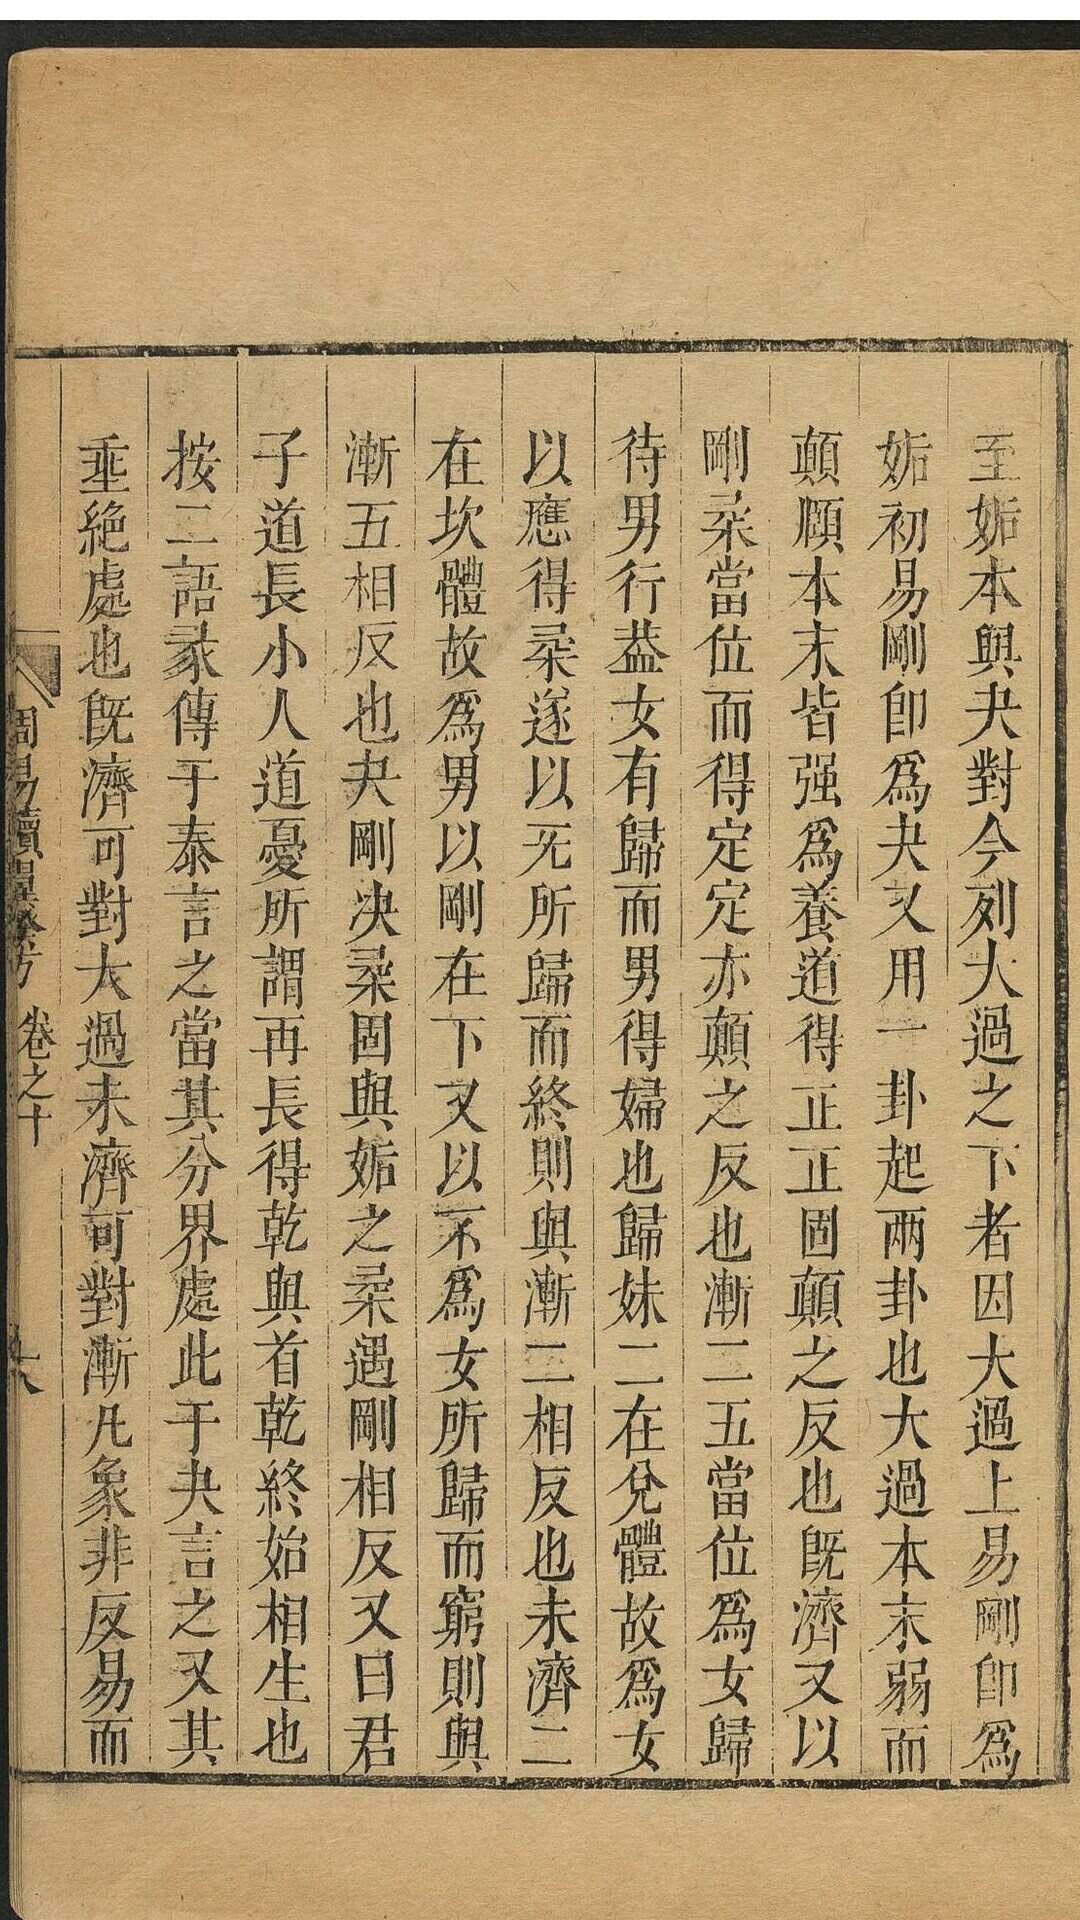 至姤本與夬對今列大過之下者因大過上易剛即爲
姤初易剛即爲夬又用一卦起兩卦也大過本末弱而
顛頤本末皆强爲養道得正正固顛之反也旣濟又以
剛柔當位而得定定亦顛之反也漸二五當位爲女歸
待男行葢女有歸而男得婦也歸妹二在兌體故爲女
以應得柔遂以无所歸而終則與漸二相反也未濟二
在坎體故爲男以剛在下又以不爲女所歸而窮則與
漸五相反也夬剛决柔固與姤之柔遇剛相反又曰君
子道長小人道憂所謂再長得乾與首乾終始相生也
按二語彖傳于泰言之當其分界處此于夬言之又其
垂絕處也旣濟可對大過未濟可對漸凡象非反易而
周易 卷之十